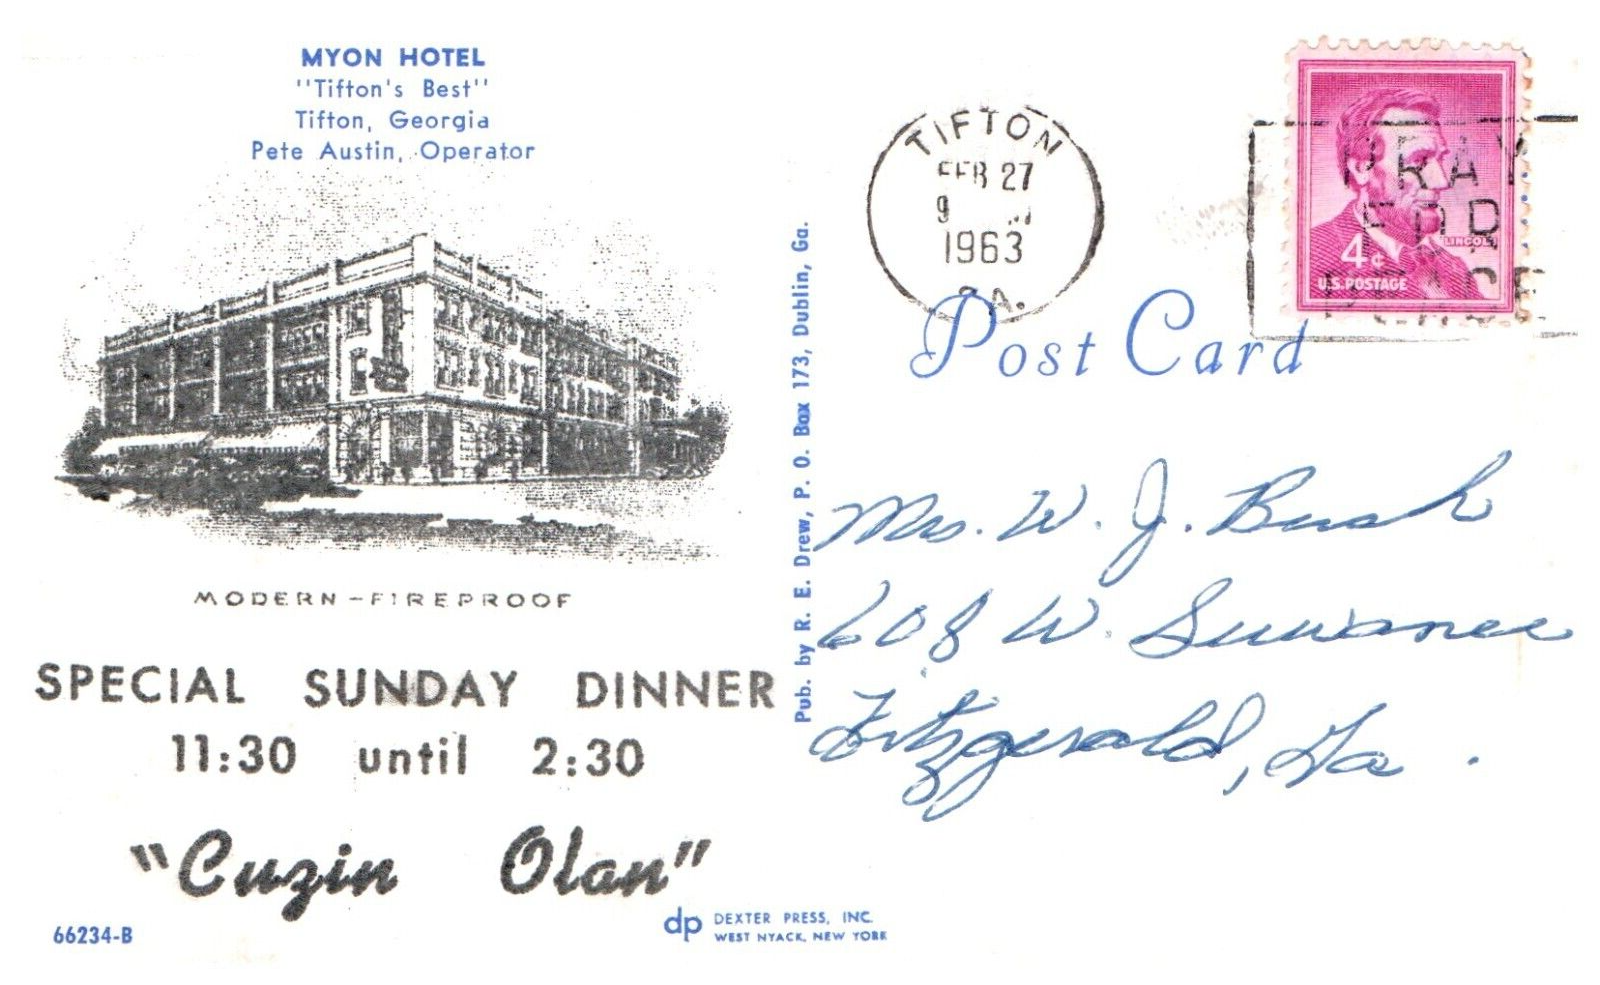 MYON HOTEL
"Tifton's Best"
Tifton, Georgia
Pete Austin, Operator
MODERN-FIREPROOF
SPECIAL SUNDAY DINNER
11:30 until 2:30
"Cuzin Olan"
66234-B
dp DEXTER PRESS, INC.
WEST NYACK, NEW YORK
Pub. by R. E. Drew, P. O. Box 173, Dublin, Ga.
TIFTON
FEB 27
9
1963
GA.
PRAY
FOR
PEACE
4¢
LINCOLN
U.S. POSTAGE
Post Card
Mrs. W. J. Bush
608 W. Suwanee
Fitzgerald, Ga.